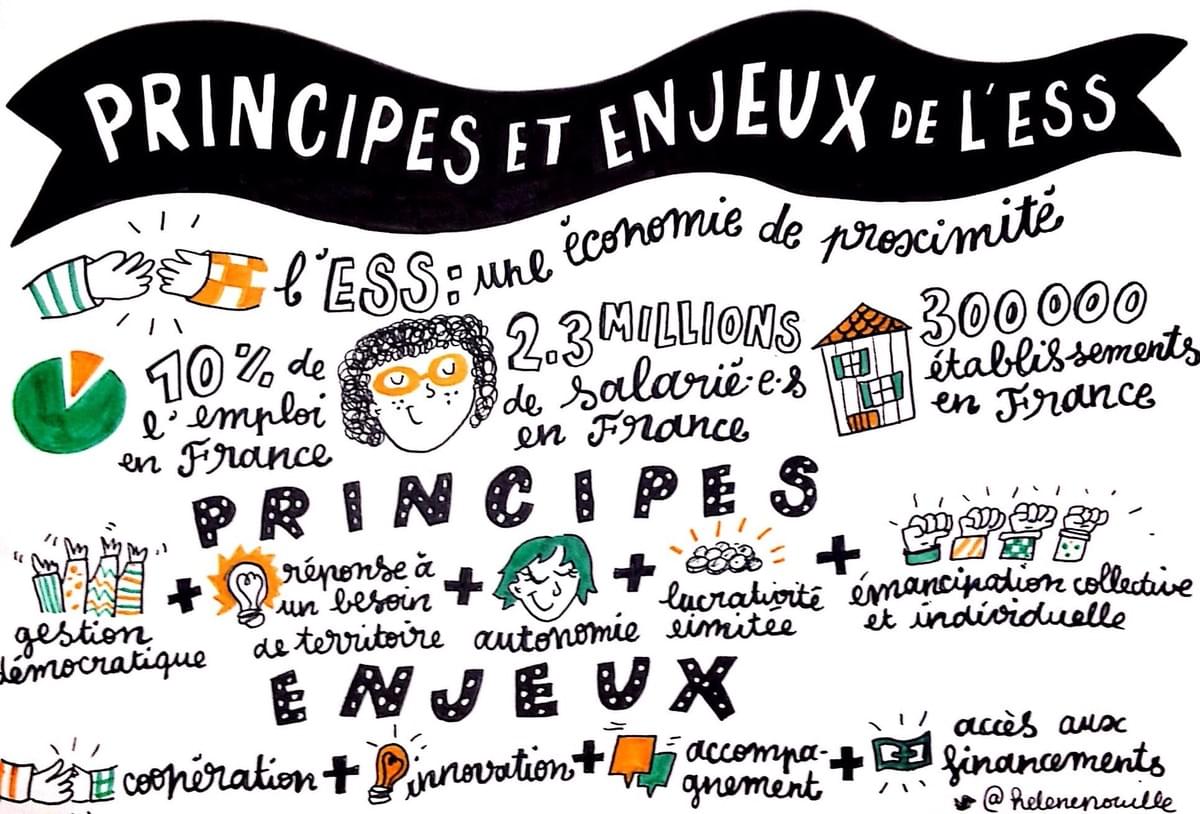 PRINCIPES ET ENJEUX DE L'ESS
l'ESS : une économie de proximité
10% de
l'emploi
en France
2.3 MILLIONS
de salarié·e·s
en France
300 000
établissements
en France
PRINCIPES
gestion
démocratique
+
réponse à
un besoin
de territoire
+
autonomie
+
lucrativité
limitée
+
émancipation collective
et individuelle
ENJEUX
coopération + innovation + accompa-
gnement
+
accès aux
financements
@helenepouille